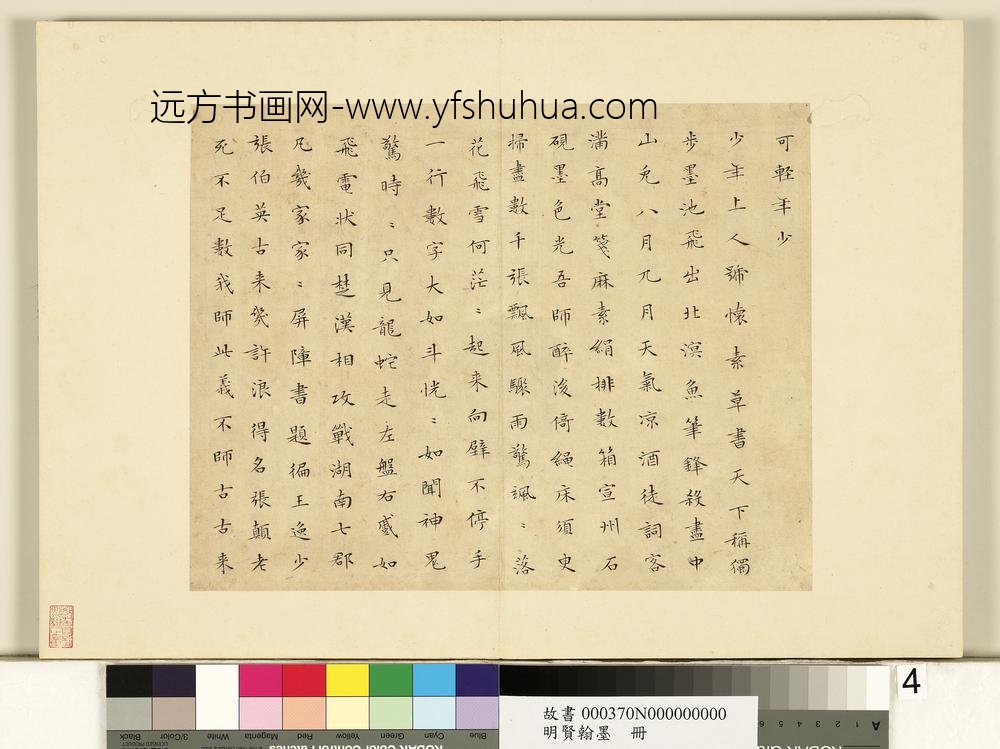 远方书画网-www.yfshuhua.com
可輕年少
少年上人號懷素草書天下稱獨
步墨池飛出北溟魚筆鋒殺盡中
山兔八月九月天氣凉酒徒詞客
滿高堂箋麻素絹排數箱宣州石
硯墨色光吾師醉後倚繩床須臾
掃盡數千張飄風驟雨驚颯〻落
花飛雪何茫〻起来向壁不停手
一行數字大如斗恍〻如聞神鬼
驚時〻只見龍蛇走左盤右蹙如
飛電狀同楚漢相攻戰湖南七郡
凡幾家家〻屏障書題徧王逸少
張伯英古来幾許浪得名張顛老
死不足數我師此義不師古古来
4
故書 000370N000000000
明賢翰墨 冊
Black
3/Color
White
Magenta
Red
Yellow
Green
Cyan
Blue
A 1 2 3 4 5 6